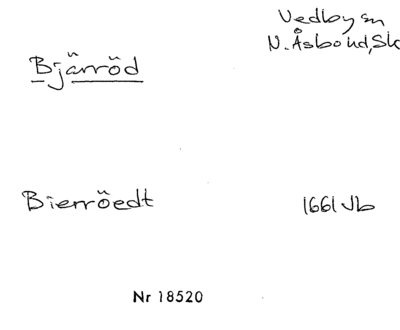 Vedby sn
N. Åsbo hd, Sk
Bjärröd
Bierröedt
1661 Jb
Nr 18520